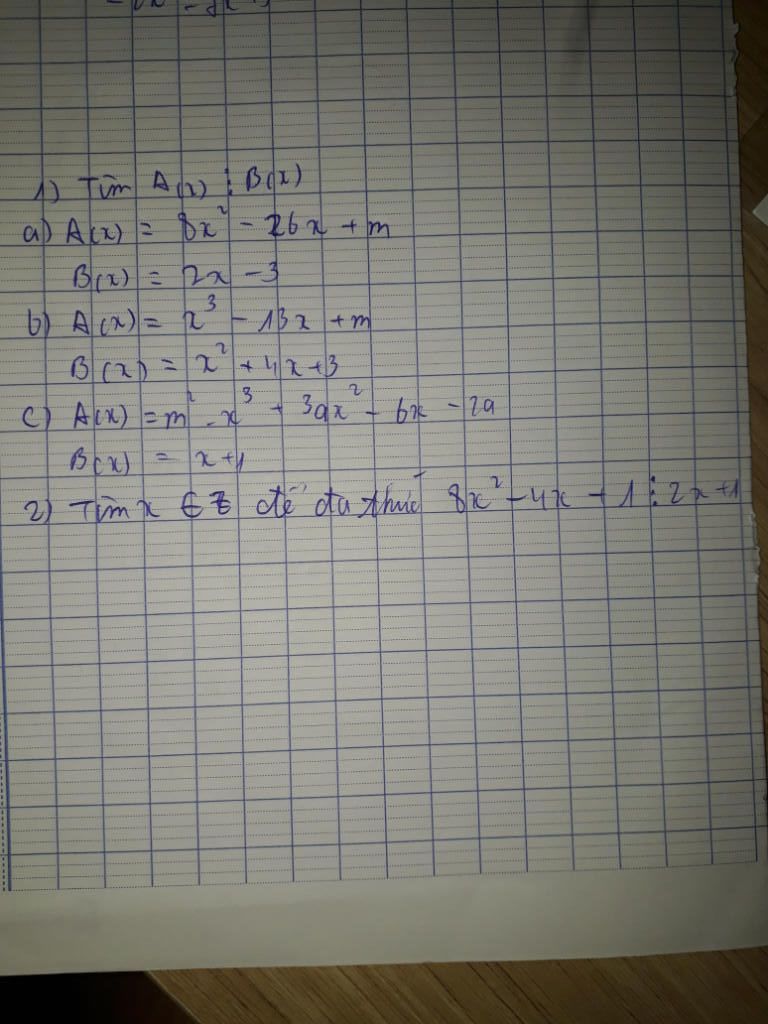 1) Tìm A(x) ⋮ B(x)
a) A(x) = 8x² - 26x + m
B(x) = 2x - 3
b) A(x) = x³ - 13x + m
B(x) = x² + 4x + 3
c) A(x) = m² - x³ + 3ax² - 6x - 2a
B(x) = x + 1
2) Tìm x ∈ Z để đa thức 8x² - 4x + 1 ⋮ 2x + 1